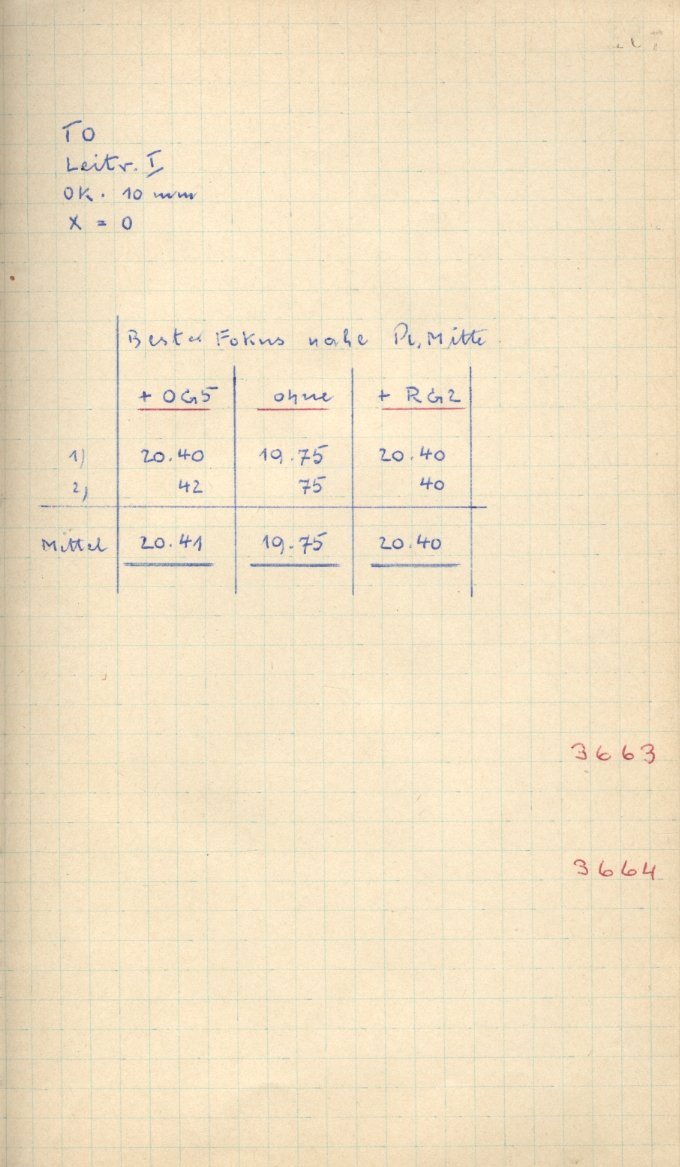 TO
Leitr. I
OK. 10 mm
X = 0
Bester Fokus nahe Pl. Mitte
+ OG5 ohne + RG2
1) 20.40 19.75 20.40
2) 42 75 40
Mittel 20.41 19.75 20.40
3663
3664